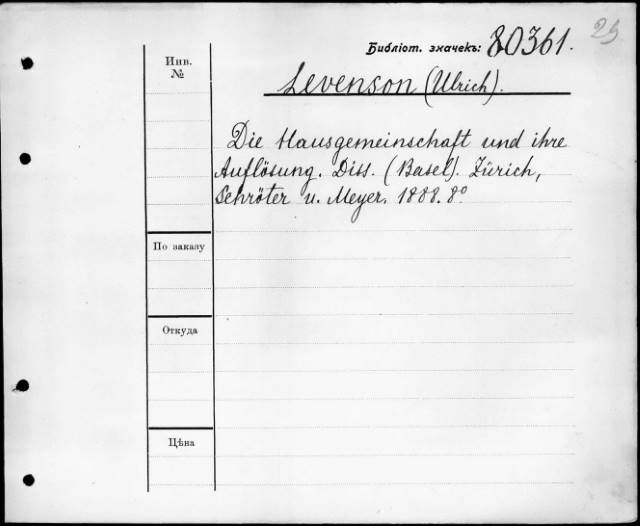 Библiот. значекъ: 80361.
25
Инв.
№
Levenson (Ulrich).
Die Hausgemeinschaft und ihre
Auflösung. Diss. (Basel). Zürich,
Schröter u. Meyer. 1888. 8º
По заказу
Откуда
Цѣна